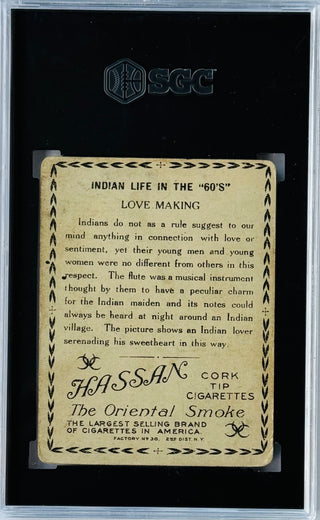 SGC
INDIAN LIFE IN THE "60'S"
LOVE MAKING
Indians do not as a rule suggest to our
mind anything in connection with love or
sentiment, yet their young men and young
women were no different from others in this
respect. The flute was a musical instrument
thought by them to have a peculiar charm
for the Indian maiden and its notes could
always be heard at night around an Indian
village. The picture shows an Indian lover
serenading his sweetheart in this way.
HASSAN
CORK
TIP
CIGARETTES
The Oriental Smoke
THE LARGEST SELLING BRAND
OF CIGARETTES IN AMERICA.
FACTORY Nº 30. 2ND DIST. N.Y.